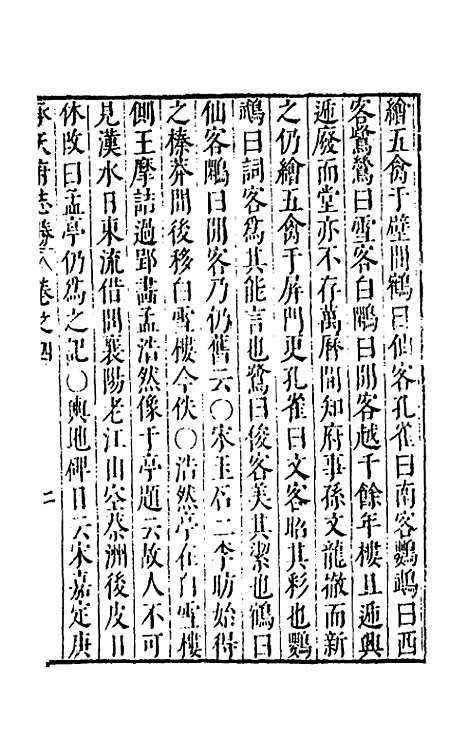 繪五禽于壁間鶴曰仙客孔雀曰南客鸚鵡曰西
客鷺鷥曰雪客白鷴曰閒客越千餘年樓且遞興
遞廢而堂亦不存萬曆間知府事孫文龍徹而新
之仍繪五禽于屏門更孔雀曰文客昭其彩也鸚
鵡曰詞客為其能言也鷺曰俊客美其潔也鶴曰
仙客鷴曰閒客乃仍舊云〇宋玉石二李昉始得
之榛莽間後移白雪樓今佚〇浩然亭在白雪樓
側王摩詰過郢畵孟浩然像于亭題云故人不可
見漢水日東流借問襄陽老江山空蔡洲後皮日
休改曰孟亭仍為之記〇輿地碑目云宋嘉定庚
承天府志勝 卷之四 二